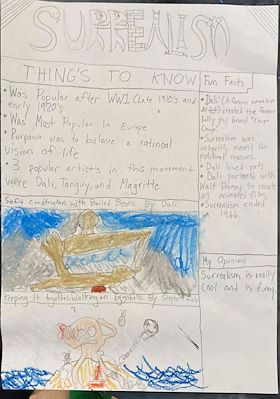 SURREALISM
THING'S TO KNOW
• Was Popular after WW1 (Late 1910's and
early 1920's
• Was Most Popular In Europe
• Purpouse was to balance a rational
vision of life
• 3 popular artists in this movement
were Dali, Tanguy, and Magritte
Soft Construction with Boiled Beans By Dali
Keeping It together, Walking on Eggshells By
Fun Facts
• Dali (A famous surrealism
Artist) created the famous
lolly pop brand "Chupa
Chups"
• Surrealism was
meant for
political reasons
• Dali loved cats
• Dali partnered with
Walt Disney to create
an animated film
• Surrealism ended
in 1966.
My Opinion
Surrealism is really
Cool and is funny.